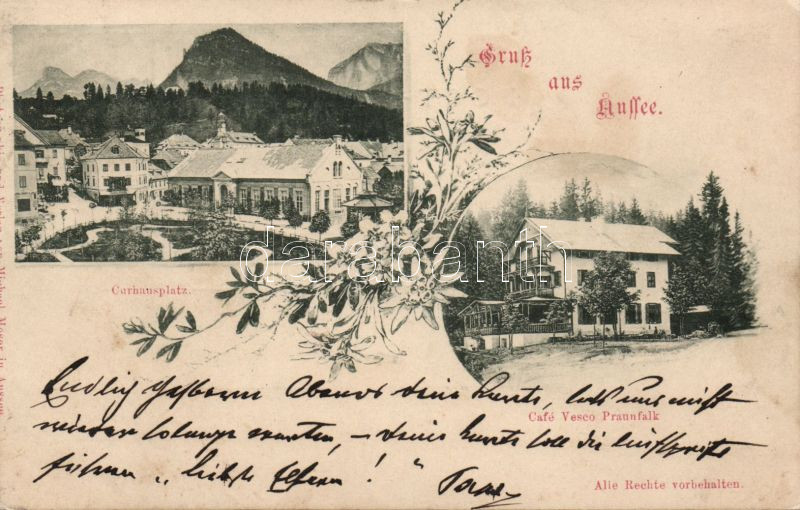 Gruß
aus
Aussee.
Curhausplatz.
Café Vesco Praunfalk
Endlich gestern Abend deine Karte, laß uns nicht
wieder so lange warten, – deine Karte soll die
führen „liebste Eltern!"
Alle Rechte vorbehalten.
Verlag von Michael Moser in Aussee
darabanth